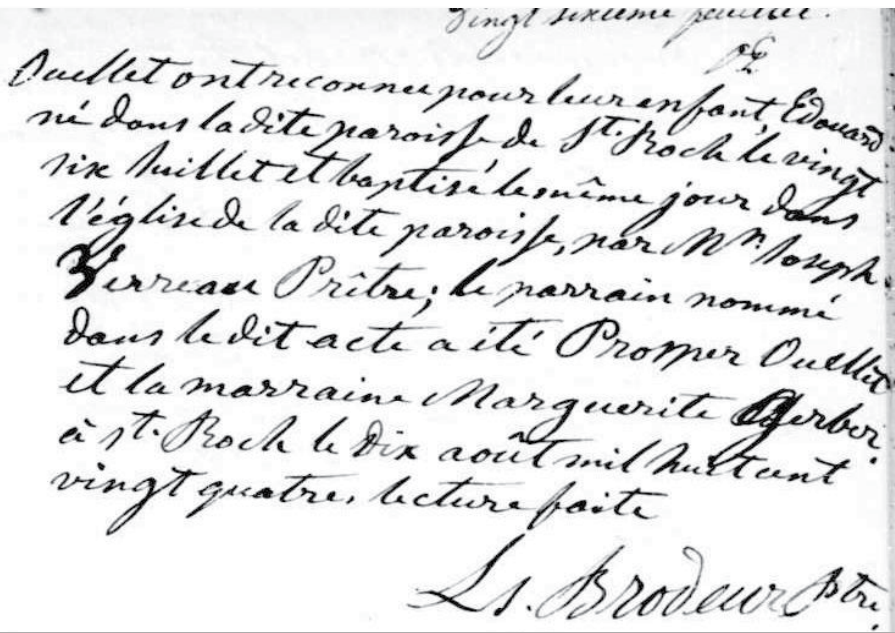 Vingt sixième feuillet.
Ouellet ont reconnu pour leur enfant, Edouard
né dans la dite paroisse de St. Roch le vingt
six Juillet et baptisé le même jour dans
l'église de la dite paroisse, par Mr. Joseph
Verreau Prêtre; le parrain nommé
dans le dit acte a été Prosper Ouellet
et la marraine Marguerite Gerber.
à St. Roch le dix août mil huit cent
vingt quatre. lecture faite
Ls. Brodeur Ptre.